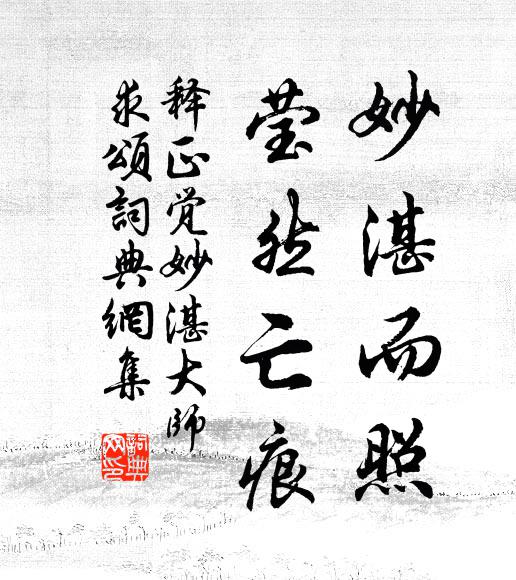 妙湛而照
莹然亡痕
释正觉妙湛大师
求颂詞典網集